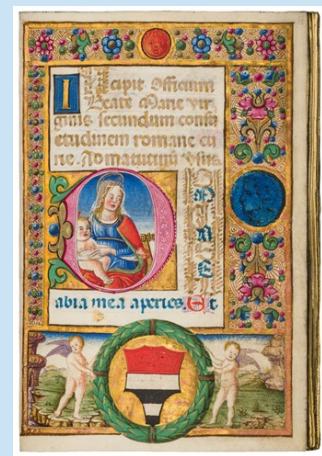 Incipit Officium
Beate Marie vir
ginis secundum consu
etudinem romane cu
rie. Ad matutinū
D
N
E
abia mea aperies. Et